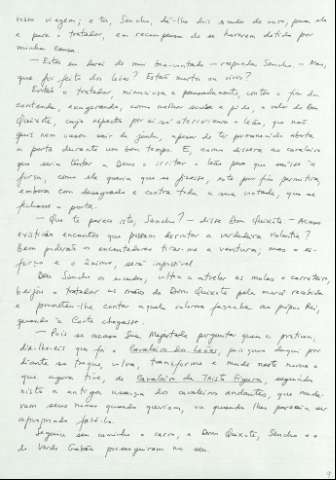 vossa viagem; e tu, Sancho, dá-lhe dois escudos de ouro, para ele
e para o tratador, em recompensa de se haverem detido por
minha causa.
— Estes eu darei de mui boa-vontade — respondeu Sancho. — Mas,
que foi feito dos leões? Estão mortos ou vivos?
Então o tratador, minuciosa e pausadamente, contou o fim da
contenda, exagerando, como melhor soube e pôde, o valor de Dom
Quixote, cujo aspecto por si só aterrorizara o leão, que não
quis nem ousou sair da jaula, apesar de ter permanecido aberta
a porta durante um bom tempo. E, como dissera ao cavaleiro
que seria tentar a Deus o irritar o leão para que saísse à
força, como ele queria que se fizesse, este por fim permitira,
embora com desagrado e contra toda a sua vontade, que se
fechasse a porta.
— Que te parece isto, Sancho? — disse Dom Quixote — Acaso
existirão encantos que possam derrotar a verdadeira valentia?
Bem poderão os encantadores tirar-me a ventura, mas o es-
forço e o ânimo, será impossível.
Deu Sancho os escudos, voltou a atrelar as mulas o carreteiro,
beijou o tratador as mãos de Dom Quixote pela mercê recebida
e prometeu-lhe contar aquela valorosa façanha ao próprio Rei,
quando à Corte chegasse.
— Pois se acaso Sua Majestade perguntar quem a praticou,
dir-lhe-eis que foi o Cavaleiro dos Leões, pois quero daqui por
diante se troque, volva, transforme e mude neste nome o
que agora tive, de Cavaleiro da Triste Figura, seguindo
nisto a antiga usança dos cavaleiros andantes, que muda-
vam seus nomes quando queriam, ou quando lhes parecia ser
apropriado fazê-lo.
Seguiu seu caminho o carro, e Dom Quixote, Sancho e o
do Verde Gabão prosseguiram no seu.